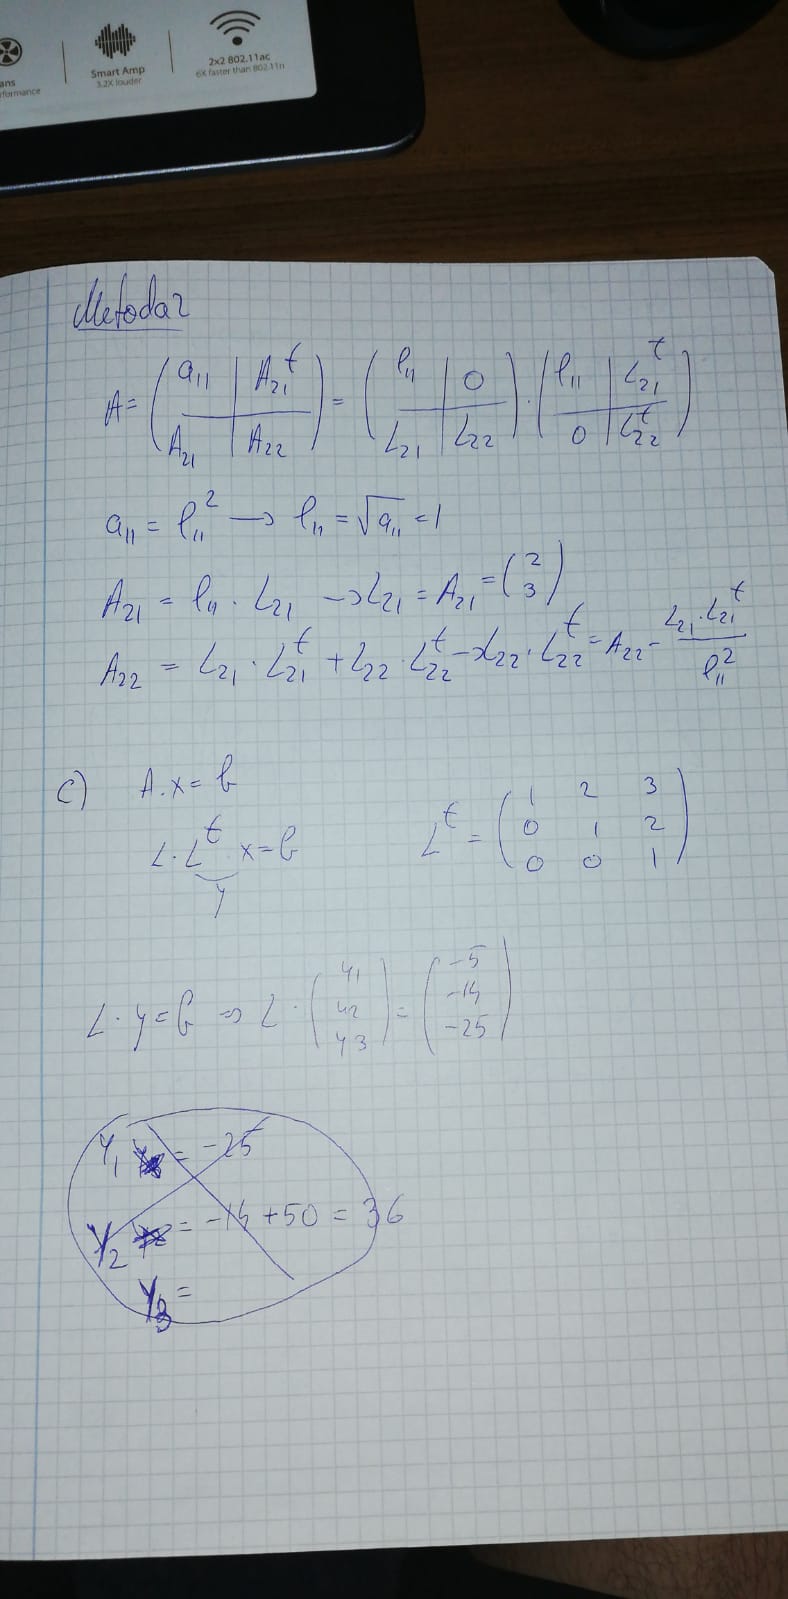 ans
rformance
Smart Amp
3.2X louder
2x2 802.11ac
6X faster than 802.11n
Metoda 2
A = ( a₁₁ | A₂₁ᵗ ) = ( l₁₁ | 0 ) · ( l₁₁ | L₂₁ᵗ )
( A₂₁ | A₂₂ ) ( L₂₁ | L₂₂ ) ( 0 | L₂₂ᵗ )
a₁₁ = l₁₁² → l₁₁ = √a₁₁ = 1
A₂₁ = l₁₁ · L₂₁ → L₂₁ = A₂₁ = (2 3)
A₂₂ = L₂₁ · L₂₁ᵗ + L₂₂ · L₂₂ᵗ → L₂₂ · L₂₂ᵗ = A₂₂ - L₂₁ · L₂₁ᵗ / l₁₁²
c) A · x = b
L · Lᵗ · x = b
y
Lᵗ = ( 1 2 3
0 1 2
0 0 1 )
L · y = b ⇒ L · ( y1 y2 y3 ) = ( -5 -14 -25 )
y₁ = -25
y₂ = -14 + 50 = 36
y₃ =